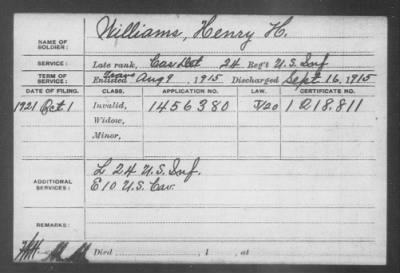 NAME OF SOLDIER: Williams, Henry H.
SERVICE: Late rank, Cas Det 24 Reg't U.S. Inf
TERM OF SERVICE: Enlisted Trans Aug 9, 1915 Discharged Sept. 16, 1915
DATE OF FILING. CLASS. APPLICATION NO. LAW. CERTIFICATE NO.
1921 Oct 1 Invalid, 1456380 1218.811
Widow,
Minor,
ADDITIONAL SERVICES: L 24 U.S. Inf.
E 10 U.S. Cav.
REMARKS:
Died , 1 , at